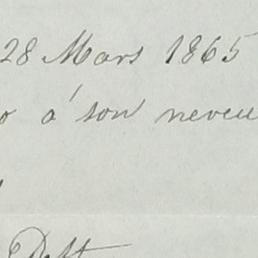 28 Mars 1865
o à son neveu